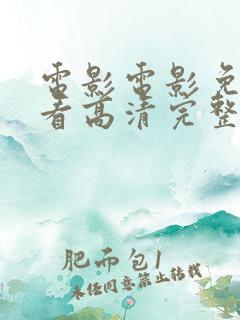 雷影雷影免
看高清完整
肥而包1
未经同意禁止转载